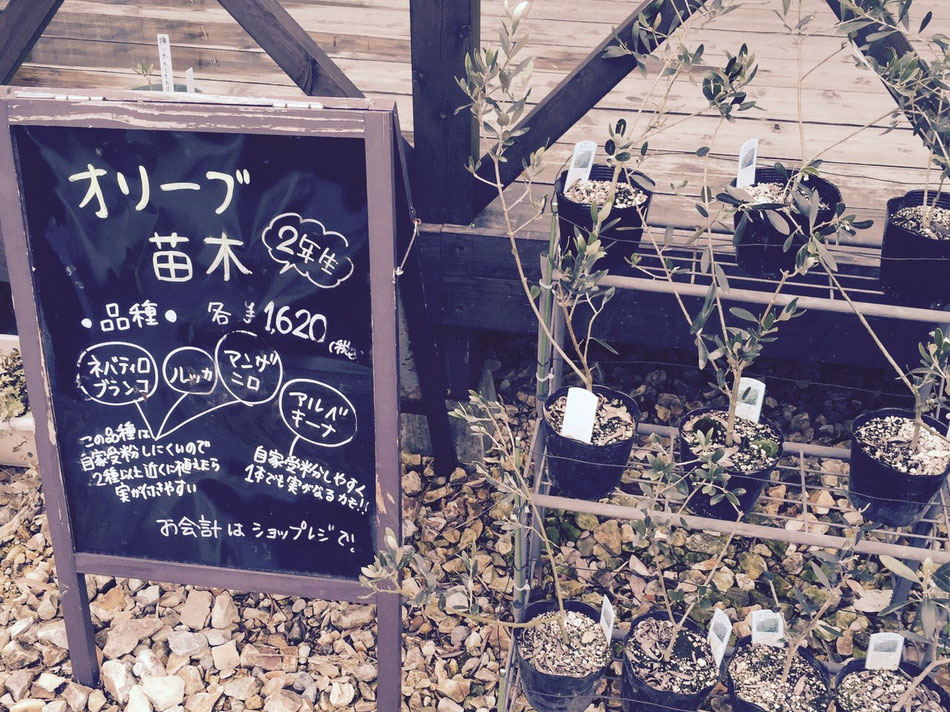 オリーブ
苗木
2年生
•品種• 各¥1,620
(税込
ネバディロ
ブランコ
ルッカ
マンザ
ニロ
アルベ
キーナ
この品種は
自家受粉しにくいので
2種以上近くに植えたら
実が付きやすい
自家受粉しやすく
1本でも実がなるカモ!!
お会計はショップレジで!